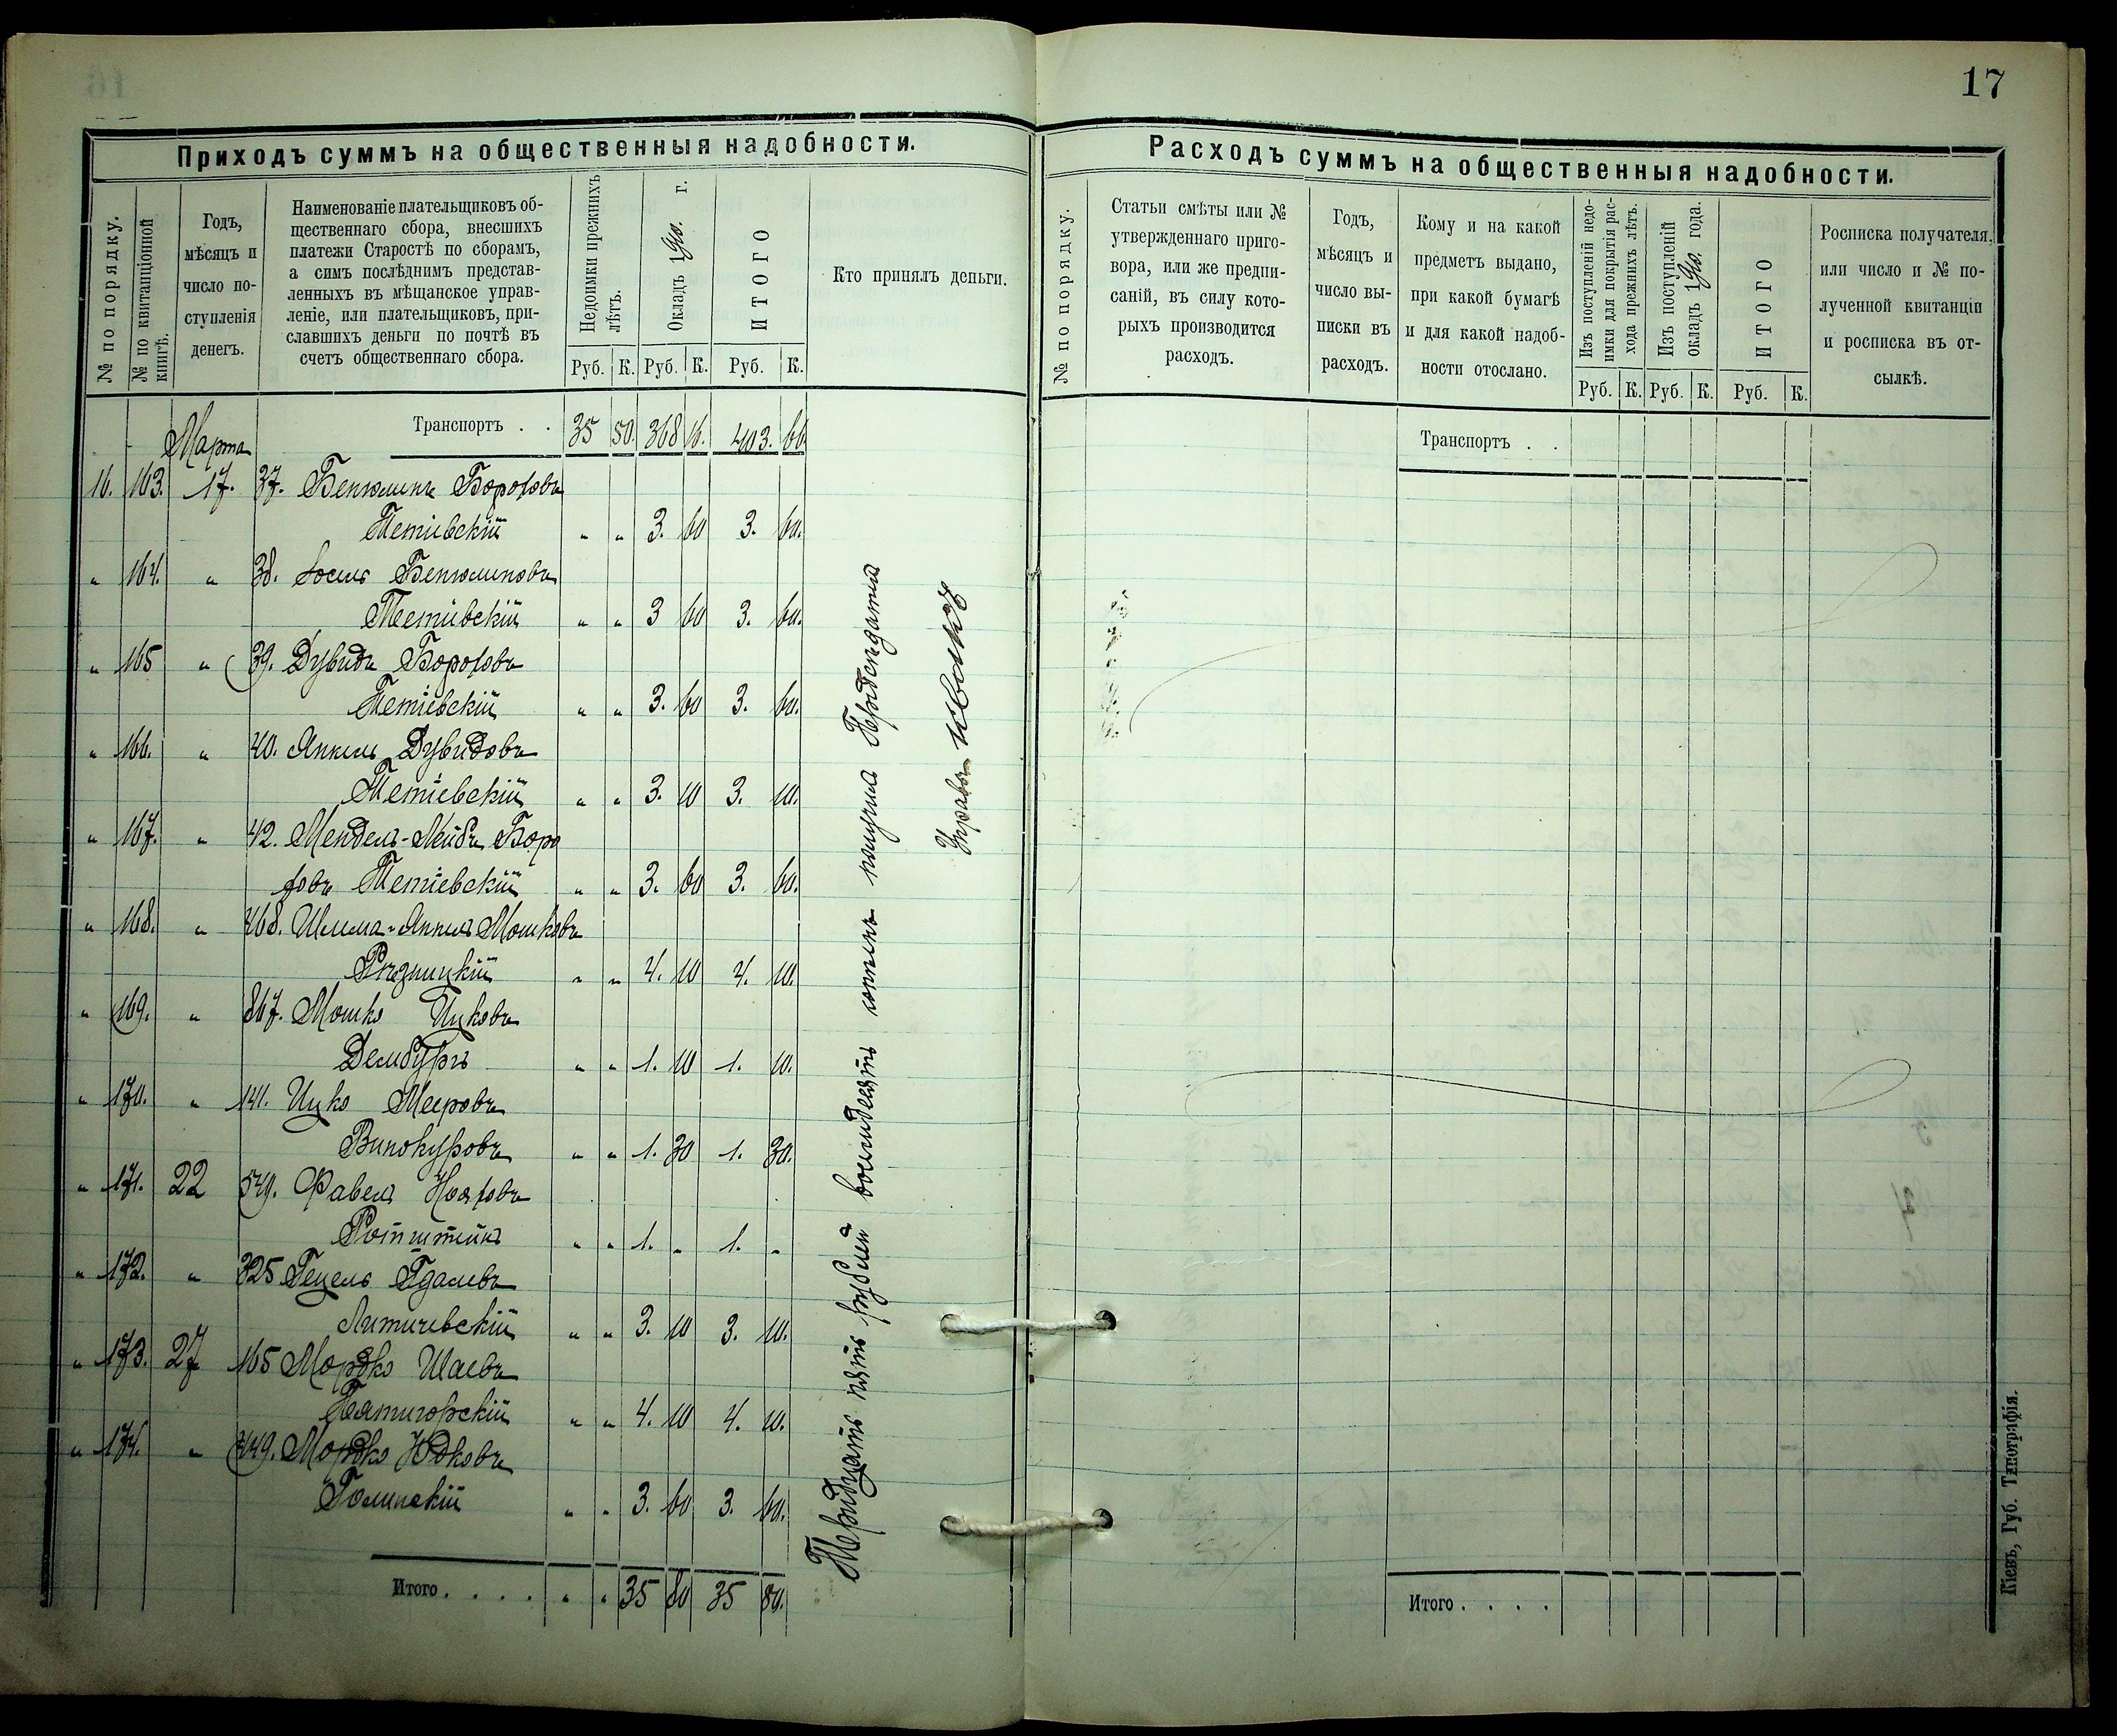 17
Приходъ суммъ на общественныя надобности.
№ по порядку.
№ по квитанціонной
книгѣ.
Годъ,
мѣсяцъ и
число по-
ступленія
денегъ.
Наименованіе плательщиковъ об-
щественнаго сбора, внесшихъ
платежи Старостѣ по сборамъ,
а симъ послѣднимъ представ-
ленныхъ въ мѣщанское управ-
леніе, или плательщиковъ, при-
славшихъ деньги по почтѣ въ
счетъ общественнаго сбора.
Недоимки прежнихъ
лѣтъ.
Окладъ 1910. г.
ИТОГО
Руб. К. Руб. К. Руб. К.
Кто принялъ деньги.
Транспортъ . . 35 50. 368 16. 403. 66
Марта
16. 163. 17. 37. Бенюминъ Бороховъ
Тетіевскій " " 3. 60 3. 60.
" 164. " 38. Іосль Бенюминовъ
Тетіевскій " " 3 60 3. 60.
" 165 " 39. Дувидъ Бороховъ
Тетіевскій " " 3. 60 3. 60.
" 166. " 40. Янкель Дувидовъ
Тетіевскій " " 3. 10 3. 10.
" 167. " 42. Мендель-Лейбъ Боро
ховъ Тетіевскій " " 3. 60 3. 60.
" 168. " 468. Шлима-Янкель Мошковъ
Рѣзницкій " " 4. 10 4. 10.
" 169. " 867. Мошко Ицковъ
Дембургъ " " 1. 10 1. 10.
" 170. " 141. Ицко Мееровъ
Винокуровъ " " 1. 30 1. 30.
" 171. 22 549. Фавель Нояховъ
Ротштейнъ " " 1. " 1. "
" 172. " 325 Гецель Гдалевъ
Литичевскій " " 3. 10 3. 10.
" 173. 27 165 Мордко Шаевъ
Пятигорскій " " 4. 10 4. 10.
" 174. " 449. Мордко Юдковъ
Голинскій " " 3. 60 3. 60.
Итого . . . . " " 35 80 35 80.
Тридцать пять рублей восемдесятъ копѣекъ получилъ
Управы
Расходъ суммъ на общественныя надобности.
№ по порядку.
Статьи смѣты или №
утвержденнаго приго-
вора, или же предпи-
саній, въ силу кото-
рыхъ производится
расходъ.
Годъ,
мѣсяцъ и
число вы-
писки въ
расходъ.
Кому и на какой
предметъ выдано,
при какой бумагѣ
и для какой надоб-
ности отослано.
Изъ поступленій недо-
имки для покрытія рас-
хода прежнихъ лѣтъ.
Изъ поступленій
окладъ 1910. года.
ИТОГО
Руб. К. Руб. К. Руб. К.
Росписка получателя,
или число и № по-
лученной квитанціи
и росписка въ от-
сылкѣ.
Транспортъ . .
Итого . . . .
Кіевъ, Губ. Типографія.